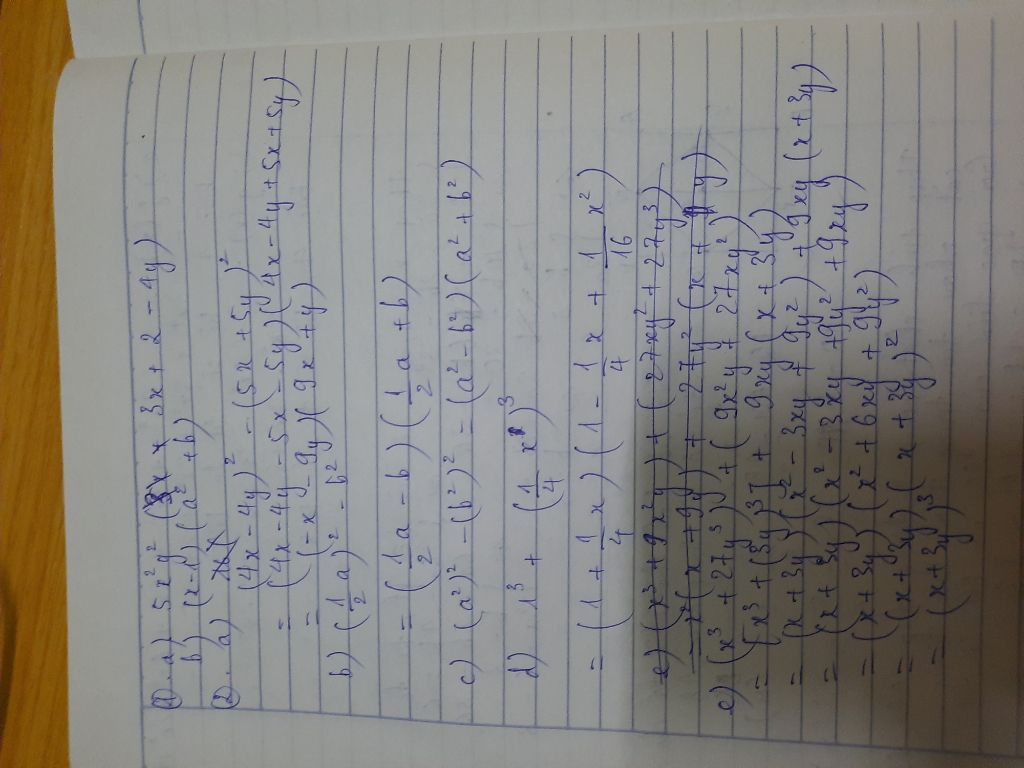 1. a) 5x²y² (3x + 2 - 4y)
b) (x-1) (a² + b)
2. a)
(4x - 4y)² - (5x + 5y)²
= (4x - 4y - 5x - 5y)(4x - 4y + 5x + 5y)
= (-x - 9y)(9x + y)
b) (1/2 a)² - b²
= (1/2 a - b) (1/2 a + b)
c) (a²)² - (b²)² = (a² - b²)(a² + b²)
d) 1³ + (1/4 x)³
= (1 + 1/4 x) (1 - 1/4 x + 1/16 x²)
e) (x³ + 9x²y) + (27xy² + 27y³)
e) (x³ + 27y³) + (9x²y + 27xy²)
= [x³ + (3y)³] + 9xy (x + 3y)
= (x + 3y)(x² - 3xy + 9y²) + 9xy (x + 3y)
= (x + 3y) (x² - 3xy + 9y² + 9xy)
= (x + 3y) (x² + 6xy + 9y²)
= (x + 3y) (x + 3y)²
= (x + 3y)³